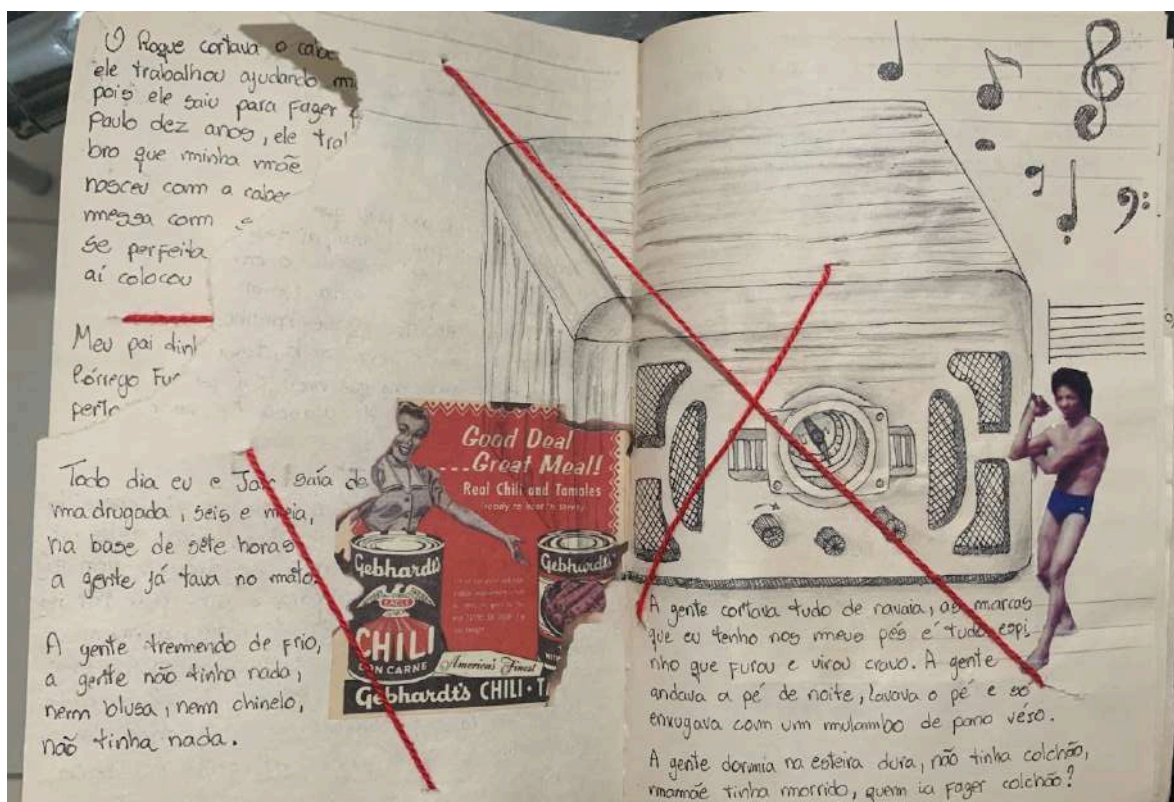 O Roque cortava o cabe
ele trabalhou ajudando m
pois ele saiu para fazer
Paulo dez anos, ele tra
bro que minha mãe
nasceu com a cabe
messa com
se perfeita
aí colocou
Meu pai
Córrego Fu
perto
Todo dia eu e saía de
madrugada, seis e meia,
na base de sete horas
a gente já tava no mato.
A gente tremendo de frio,
a gente não tinha nada,
nem blusa, nem chinelo,
não tinha nada.
Good Deal
...Great Meal!
Real Chili and Tamales
ready to heat 'n serve
Gebhardt's
EAGLE
CHILI
CON CARNE
Gebhardt's
America's Finest
Gebhardt's CHILI • TA
A gente cortava tudo de navaia, as marcas
que eu tenho nos meus pés é tudo espi
nho que furou e virou cravo. A gente
andava a pé de noite, lavava o pé e só
enxugava com um mulambo de pano véio.
A gente dormia na esteira dura, não tinha colchão,
mamãe tinha morrido, quem ia fazer colchão?